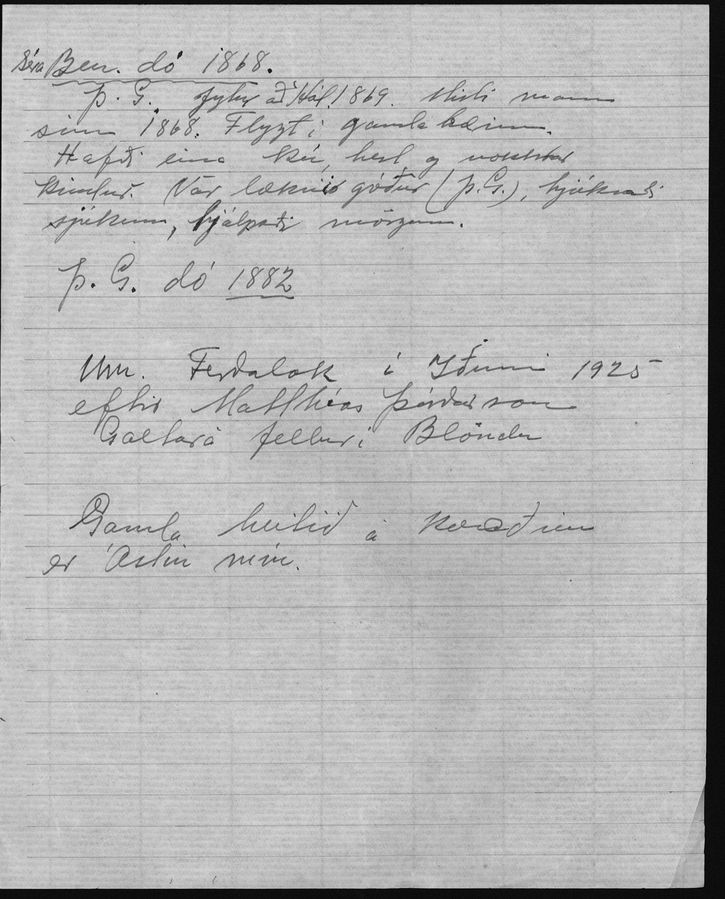 Séra Ben. dó 1868.
Þ. G. flytur að Hál 1869. Misti mann
sinn 1868. Flyzt í gamla bæinn.
Hafði eina kú, hest og nokkrar
kindur. Var læknir góður (Þ.G.), hjúkraði
sjúkum, hjálpaði mörgum.
Þ. G. dó 1882
Um Ferðalok í Iðunni 1925
eftir Matthías Þórðarson
Galtará fellur í Blöndu
Gamla heitið á kvæðinu
er Ástin mín.